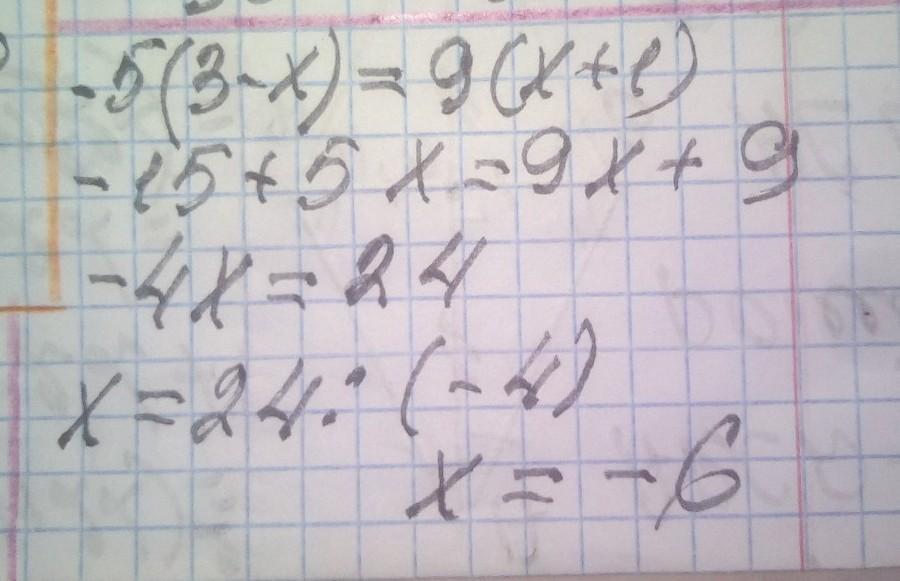 -5(3-x)=9(x+1)
-15+5x=9x+9
-4x=24
x=24:(-4)
x=-6